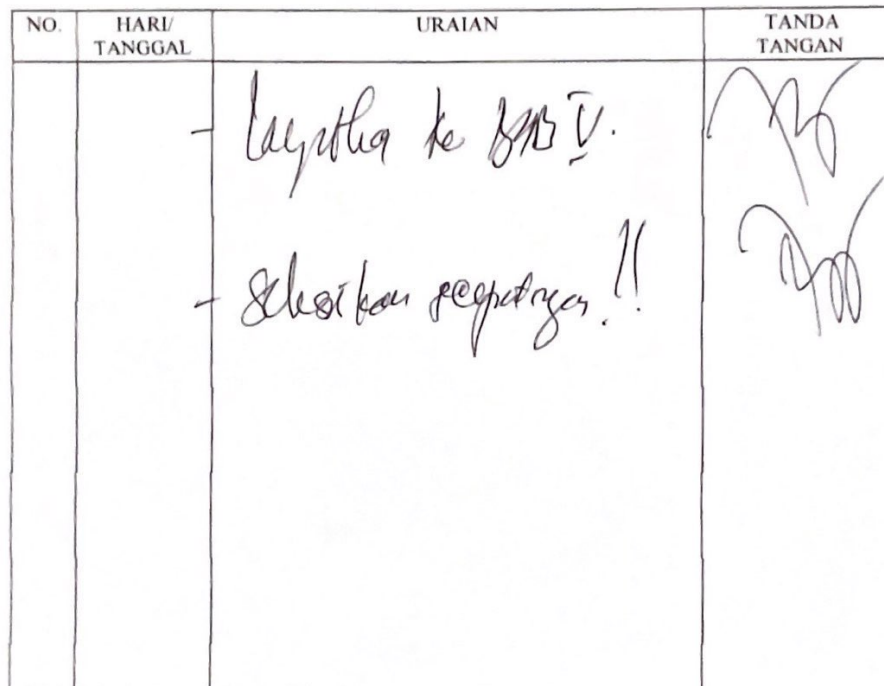 NO. HARI/ TANGGAL URAIAN TANDA TANGAN
- ke BAB V.
- Selesaikan secepatnya !!